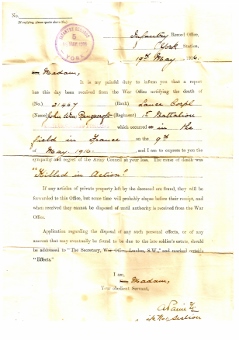 No.
Infantry Record Office,
York Station,
19th May, 1916.
Madam,
It is my painful duty to inform you that a report
has this day been received from the War Office notifying the death of
(No.) 21487 (Rank) Lance Corpl
(Name) John Wm (Regiment) Battalion
which occurred in the
field in France on the 9th
of May 1916, and I am to express to you the
sympathy and regret of the Army Council at your loss. The cause of death was
"Killed in Action"
If any articles of private property left by the deceased are found, they will be
forwarded to this Office, but some time will probably elapse before their receipt, and
when received they cannot be disposed of until authority is received from the War
Office.
Application regarding the disposal of any such personal effects, or of any
amount that may eventually be found to be due to the late soldier's estate, should
be addressed to "The Secretary, War Office, London, S.W.," and marked outside
"Effects"
I am,
Madam,
Your obedient Servant,